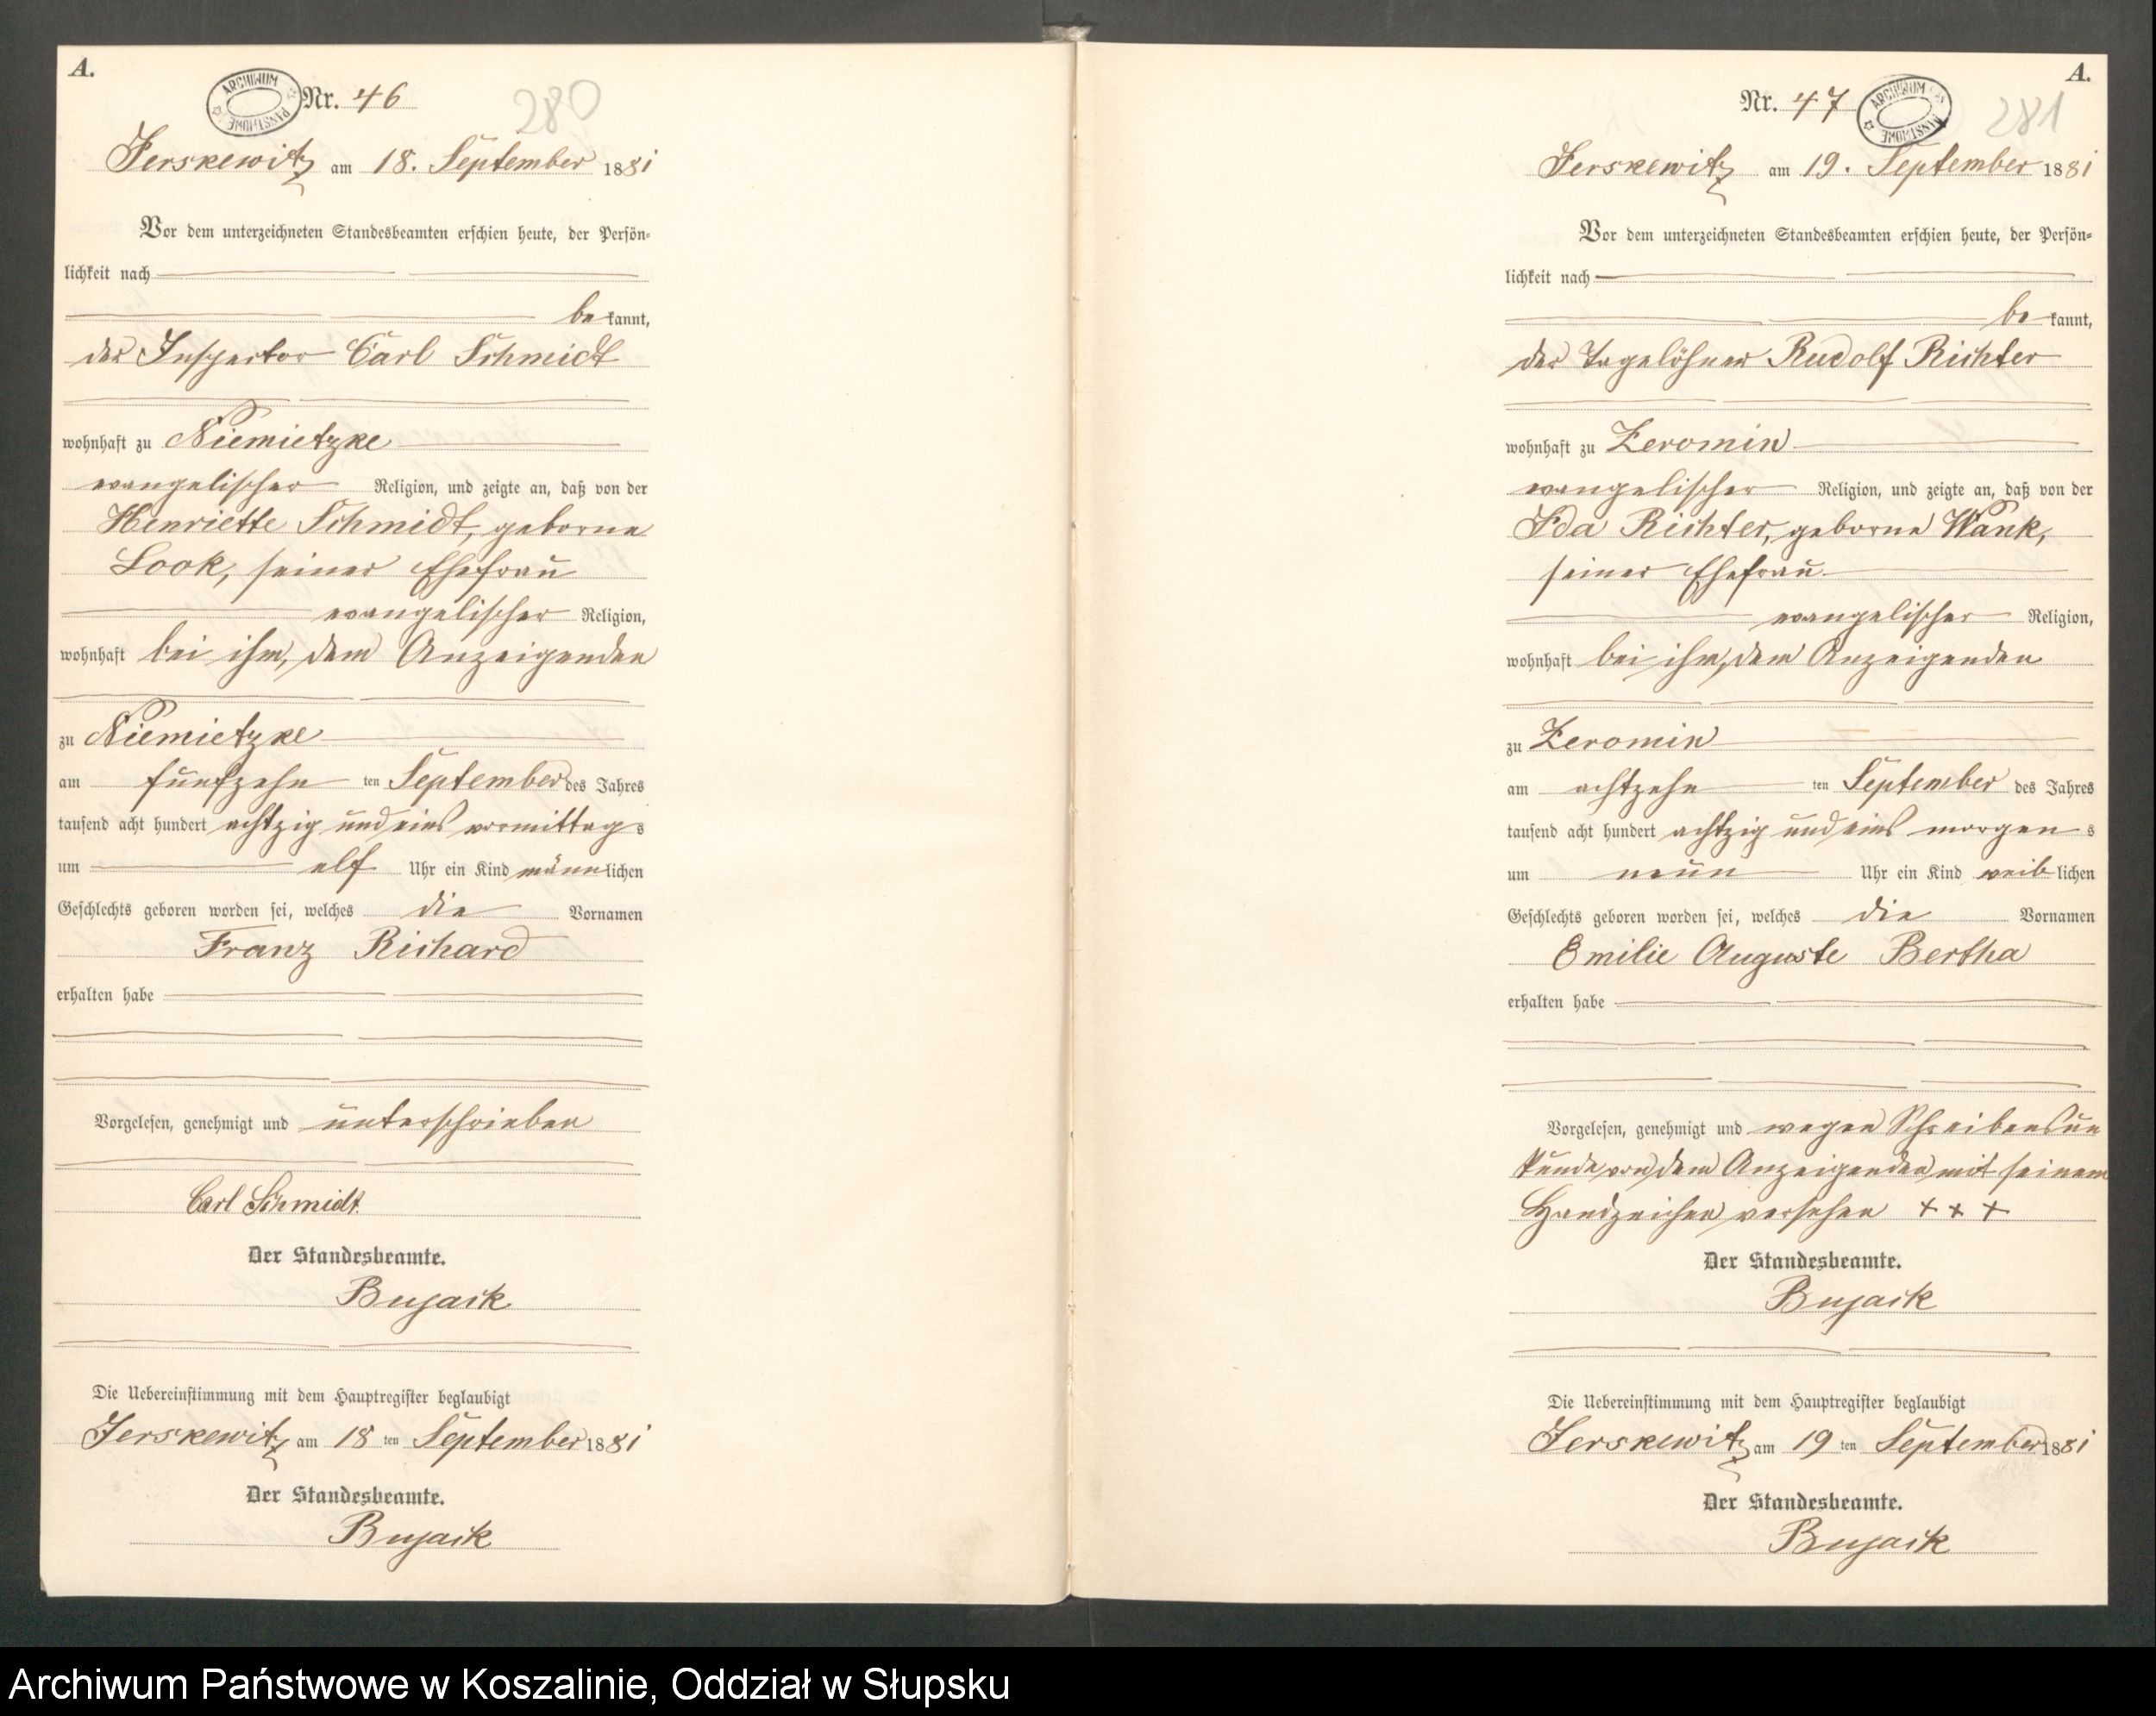 A.
ARCHIWUM PAŃSTWOWE
Nr. 46
280
Jerskewitz am 18. September 1881
Vor dem unterzeichneten Standesbeamten erschien heute, der Persön-
lichkeit nach
bekannt,
der Inspector Carl Schmidt
wohnhaft zu Niemietzke
evangelischer Religion, und zeigte an, daß von der
Henriette Schmidt, geborne
Look, seiner Ehefrau
evangelischer Religion,
wohnhaft bei ihm, dem Anzeigenden
zu Niemietzke
am fünfzehn ten September des Jahres
tausend acht hundert achtzig und eins vormittags
um elf Uhr ein Kind männlichen
Geschlechts geboren worden sei, welches die Vornamen
Franz Richard
erhalten habe
Vorgelesen, genehmigt und unterschrieben
Carl Schmidt.
Der Standesbeamte.
Bujack
Die Uebereinstimmung mit dem Hauptregister beglaubigt
Jerskewitz am 18 ten September 1881
Der Standesbeamte.
Bujack
A.
Nr. 47
ARCHIWUM PAŃSTWOWE
281
Jerskewitz am 19. September 1881
Vor dem unterzeichneten Standesbeamten erschien heute, der Persön-
lichkeit nach
bekannt,
der Tagelöhner Rudolf Richter
wohnhaft zu Zeromin
evangelischer Religion, und zeigte an, daß von der
Ida Richter, geborne Wank,
seiner Ehefrau
evangelischer Religion,
wohnhaft bei ihm, dem Anzeigenden
zu Zeromin
am achtzehn ten September des Jahres
tausend acht hundert achtzig und eins morgens
um neun Uhr ein Kind weiblichen
Geschlechts geboren worden sei, welches die Vornamen
Emilie Auguste Bertha
erhalten habe
Vorgelesen, genehmigt und wegen Schreibensun
kunde von dem Anzeigenden mit seinem
Handzeichen versehen + + +
Der Standesbeamte.
Bujack
Die Uebereinstimmung mit dem Hauptregister beglaubigt
Jerskewitz am 19 ten September 1881
Der Standesbeamte.
Bujack
Archiwum Państwowe w Koszalinie, Oddział w Słupsku